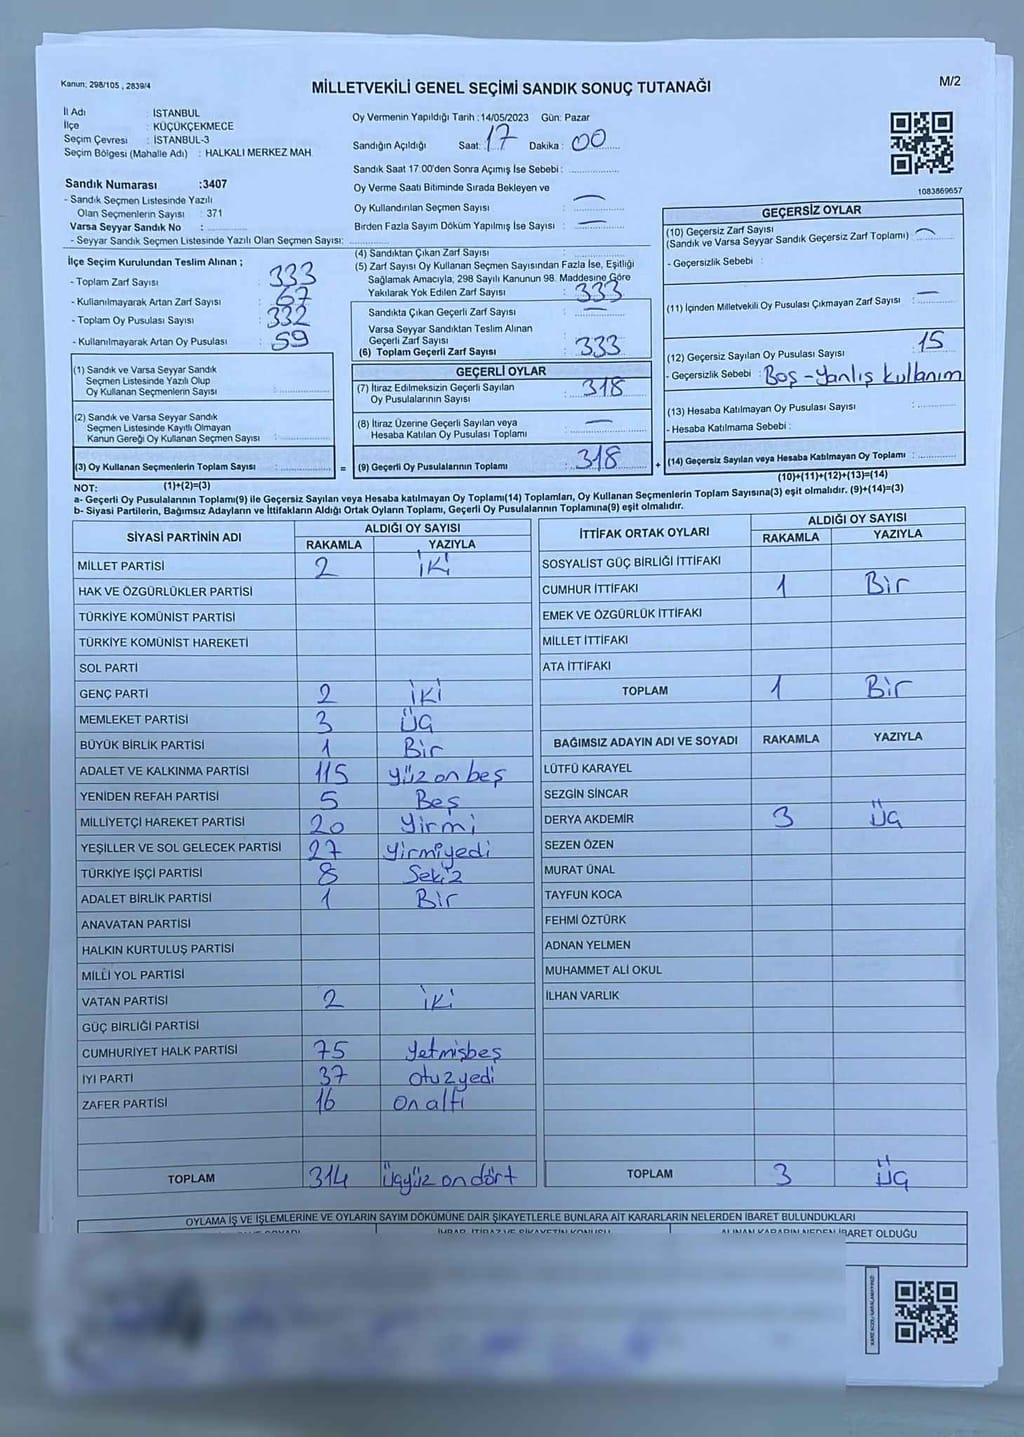 Kanun: 298/105 , 2839/4
MİLLETVEKİLİ GENEL SEÇİMİ SANDIK SONUÇ TUTANAĞI
M/2
İl Adı : İSTANBUL
İlçe : KÜÇÜKÇEKMECE
Seçim Çevresi : İSTANBUL-3
Seçim Bölgesi (Mahalle Adı) : HALKALI MERKEZ MAH.
Sandık Numarası :3407
- Sandık Seçmen Listesinde Yazılı
Olan Seçmenlerin Sayısı : 371
Varsa Seyyar Sandık No :
- Seyyar Sandık Seçmen Listesinde Yazılı Olan Seçmen Sayısı:
İlçe Seçim Kurulundan Teslim Alınan ;
- Toplam Zarf Sayısı : 333
- Kullanılmayarak Artan Zarf Sayısı : 67
- Toplam Oy Pusulası Sayısı : 332
- Kullanılmayarak Artan Oy Pusulası : 59
(1) Sandık ve Varsa Seyyar Sandık
Seçmen Listesinde Yazılı Olup
Oy Kullanan Seçmenlerin Sayısı :
(2) Sandık ve Varsa Seyyar Sandık
Seçmen Listesinde Kayıtlı Olmayan
Kanun Gereği Oy Kullanan Seçmen Sayısı :
(3) Oy Kullanan Seçmenlerin Toplam Sayısı :
(1)+(2)=(3)
Oy Vermenin Yapıldığı Tarih :14/05/2023 Gün: Pazar
Sandığın Açıldığı Saat: 17 Dakika : 00
Sandık Saat 17:00'den Sonra Açımış İse Sebebi :
Oy Verme Saati Bitiminde Sırada Bekleyen ve
Oy Kullandırılan Seçmen Sayısı : —
Birden Fazla Sayım Döküm Yapılmış İse Sayısı : —
(4) Sandıktan Çıkan Zarf Sayısı :
(5) Zarf Sayısı Oy Kullanan Seçmen Sayısından Fazla İse, Eşitliği
Sağlamak Amacıyla, 298 Sayılı Kanunun 98. Maddesine Göre
Yakılarak Yok Edilen Zarf Sayısı : 333
Sandıkta Çıkan Geçerli Zarf Sayısı : —
Varsa Seyyar Sandıktan Teslim Alınan
Geçerli Zarf Sayısı :
(6) Toplam Geçerli Zarf Sayısı : 333
GEÇERLİ OYLAR
(7) İtiraz Edilmeksizin Geçerli Sayılan
Oy Pusulalarının Sayısı : 318
(8) İtiraz Üzerine Geçerli Sayılan veya
Hesaba Katılan Oy Pusulası Toplamı : —
= (9) Geçerli Oy Pusulalarının Toplamı : 318 +
1083869657
GEÇERSİZ OYLAR
(10) Geçersiz Zarf Sayısı
(Sandık ve Varsa Seyyar Sandık Geçersiz Zarf Toplamı) : —
- Geçersizlik Sebebi :
(11) İçinden Milletvekili Oy Pusulası Çıkmayan Zarf Sayısı : —
(12) Geçersiz Sayılan Oy Pusulası Sayısı : 15
- Geçersizlik Sebebi : Boş-Yanlış kullanım
(13) Hesaba Katılmayan Oy Pusulası Sayısı :
- Hesaba Katılmama Sebebi :
(14) Geçersiz Sayılan veya Hesaba Katılmayan Oy Toplamı :
(10)+(11)+(12)+(13)=(14)
NOT:
a- Geçerli Oy Pusulalarının Toplamı(9) ile Geçersiz Sayılan veya Hesaba katılmayan Oy Toplamı(14) Toplamları, Oy Kullanan Seçmenlerin Toplam Sayısına(3) eşit olmalıdır. (9)+(14)=(3)
b- Siyasi Partilerin, Bağımsız Adayların ve İttifakların Aldığı Ortak Oyların Toplamı, Geçerli Oy Pusulalarının Toplamına(9) eşit olmalıdır.
SİYASİ PARTİNİN ADI ALDIĞI OY SAYISI
RAKAMLA YAZIYLA
MİLLET PARTİSİ 2 iki
HAK VE ÖZGÜRLÜKLER PARTİSİ
TÜRKİYE KOMÜNİST PARTİSİ
TÜRKİYE KOMÜNİST HAREKETİ
SOL PARTİ
GENÇ PARTİ 2 iki
MEMLEKET PARTİSİ 3 Üç
BÜYÜK BİRLİK PARTİSİ 1 Bir
ADALET VE KALKINMA PARTİSİ 115 yüz on beş
YENİDEN REFAH PARTİSİ 5 Beş
MİLLİYETÇİ HAREKET PARTİSİ 20 Yirmi
YEŞİLLER VE SOL GELECEK PARTİSİ 27 Yirmiyedi
TÜRKİYE İŞÇİ PARTİSİ 8 Sekiz
ADALET BİRLİK PARTİSİ 1 Bir
ANAVATAN PARTİSİ
HALKIN KURTULUŞ PARTİSİ
MİLLİ YOL PARTİSİ
VATAN PARTİSİ 2 iki
GÜÇ BİRLİĞİ PARTİSİ
CUMHURİYET HALK PARTİSİ 75 Yetmişbeş
İYİ PARTİ 37 otuzyedi
ZAFER PARTİSİ 16 on altı
TOPLAM 314 Üçyüz on dört
İTTİFAK ORTAK OYLARI ALDIĞI OY SAYISI
RAKAMLA YAZIYLA
SOSYALİST GÜÇ BİRLİĞİ İTTİFAKI
CUMHUR İTTİFAKI 1 Bir
EMEK VE ÖZGÜRLÜK İTTİFAKI
MİLLET İTTİFAKI
ATA İTTİFAKI
TOPLAM 1 Bir
BAĞIMSIZ ADAYIN ADI VE SOYADI RAKAMLA YAZIYLA
LÜTFÜ KARAYEL
SEZGİN SİNCAR
DERYA AKDEMİR 3 Üç
SEZEN ÖZEN
MURAT ÜNAL
TAYFUN KOCA
FEHMİ ÖZTÜRK
ADNAN YELMEN
MUHAMMET ALİ OKUL
İLHAN VARLIK
TOPLAM 3 Üç
OYLAMA İŞ VE İŞLEMLERİNE VE OYLARIN SAYIM DÖKÜMÜNE DAİR ŞİKAYETLERLE BUNLARA AİT KARARLARIN NELERDEN İBARET BULUNDUKLARI
İHBAR, İTİRAZ VE ŞİKAYETİN KONUSU ALINAN KARARIN NEDEN İBARET OLDUĞU